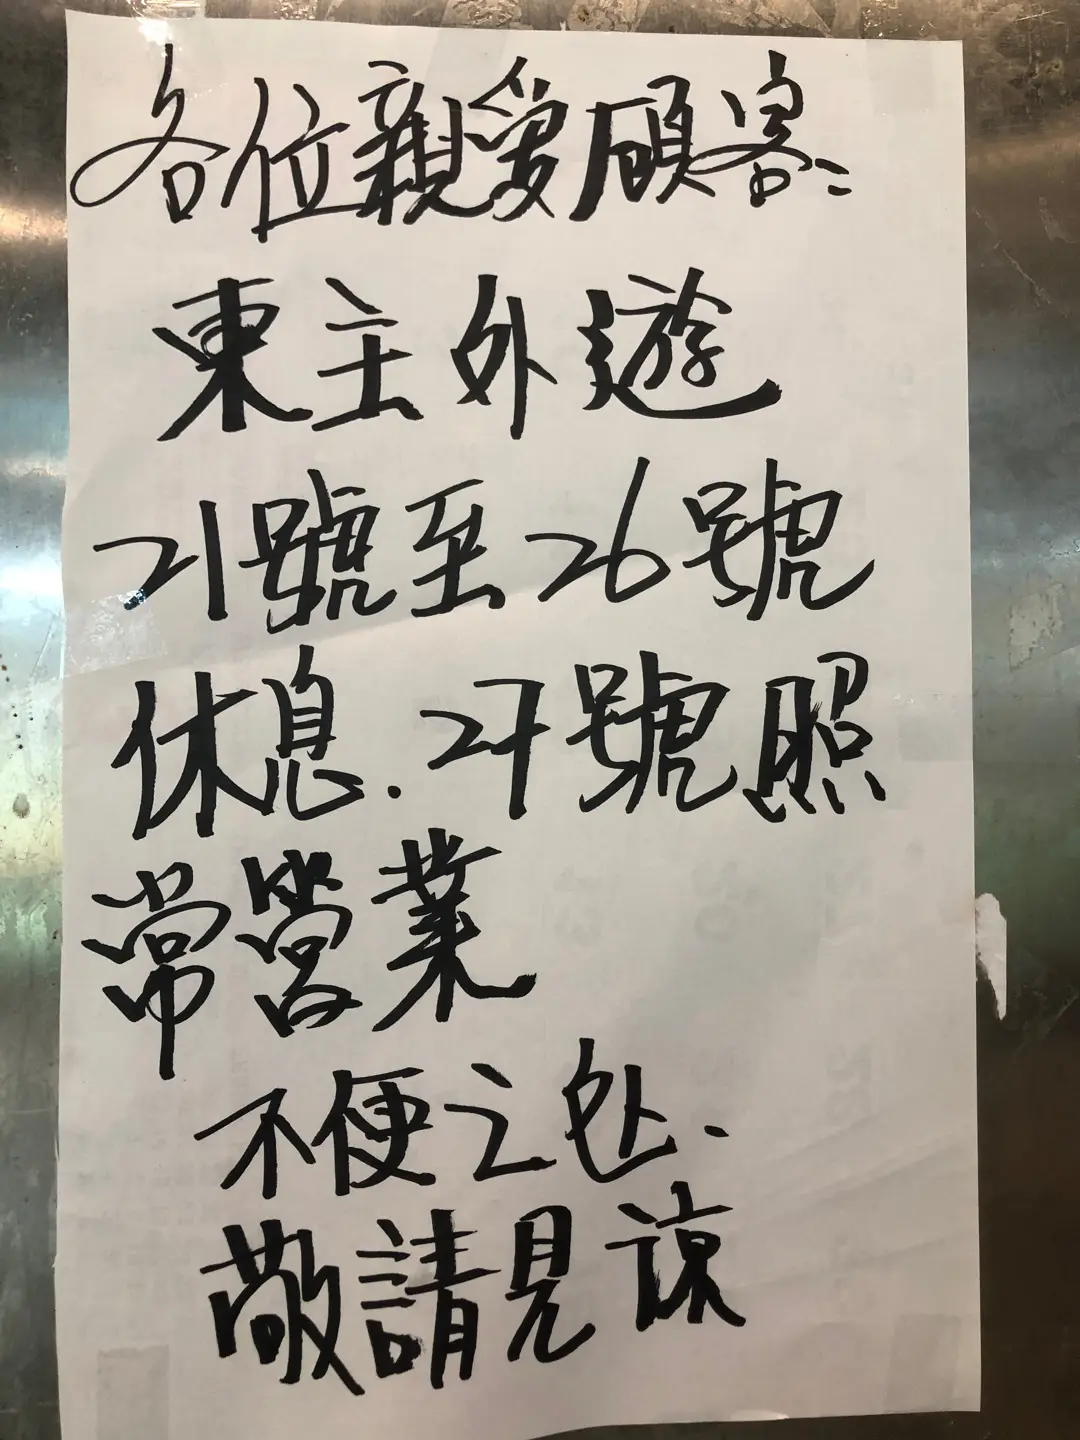 各位親愛顧客:
東主外遊
21號至26號
休息.27號照
常營業
不便之处.
敬請見諒